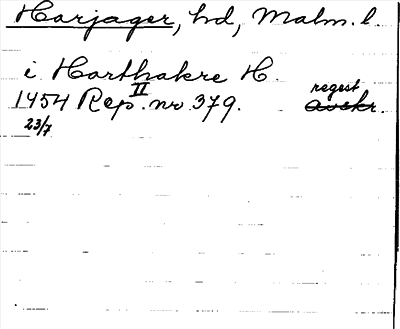 Harjager, hd, Malm. l.
i Harthakre H.
1454 Rep. II nr 379. regest
23/7 avskr.